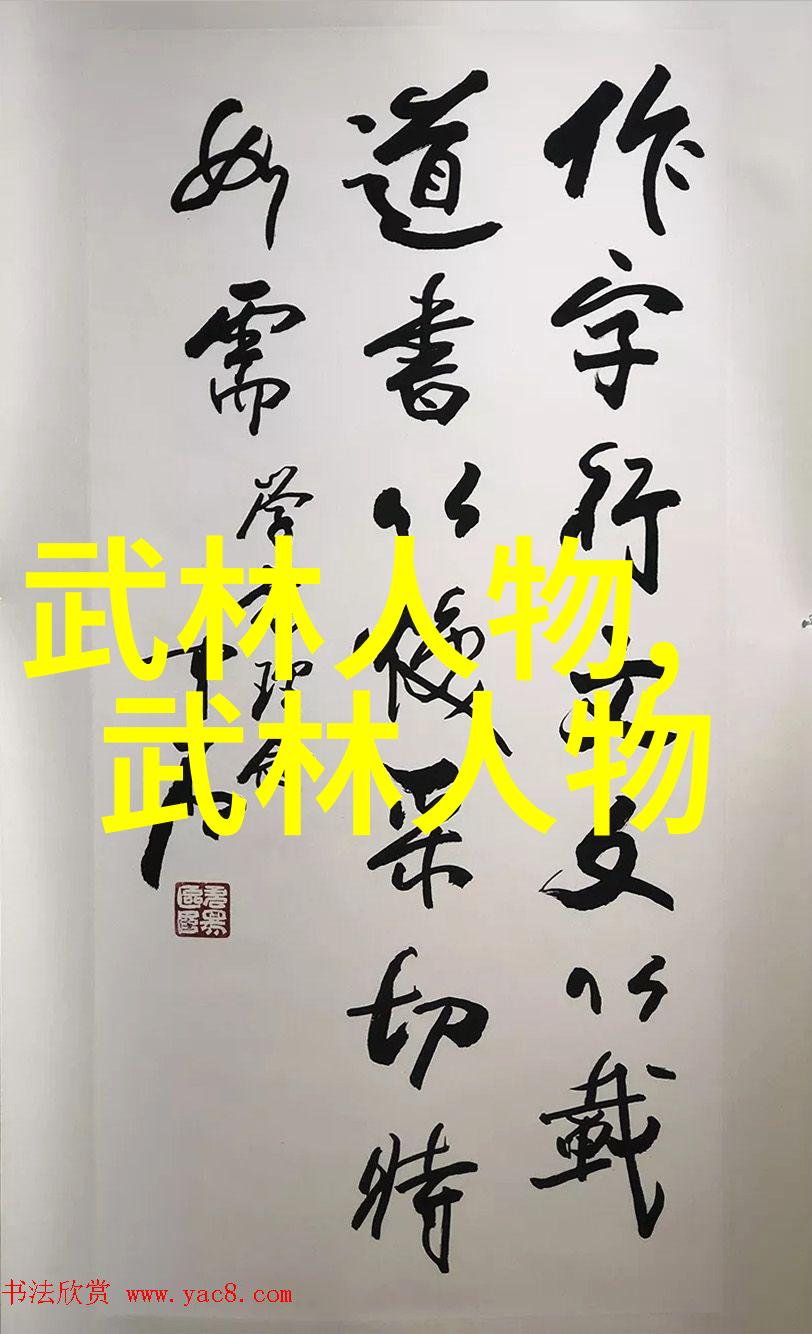 作字行文文以載
道書以焕采切時
如需
武林人物,
武林人物
书法欣赏 www.yac8.com